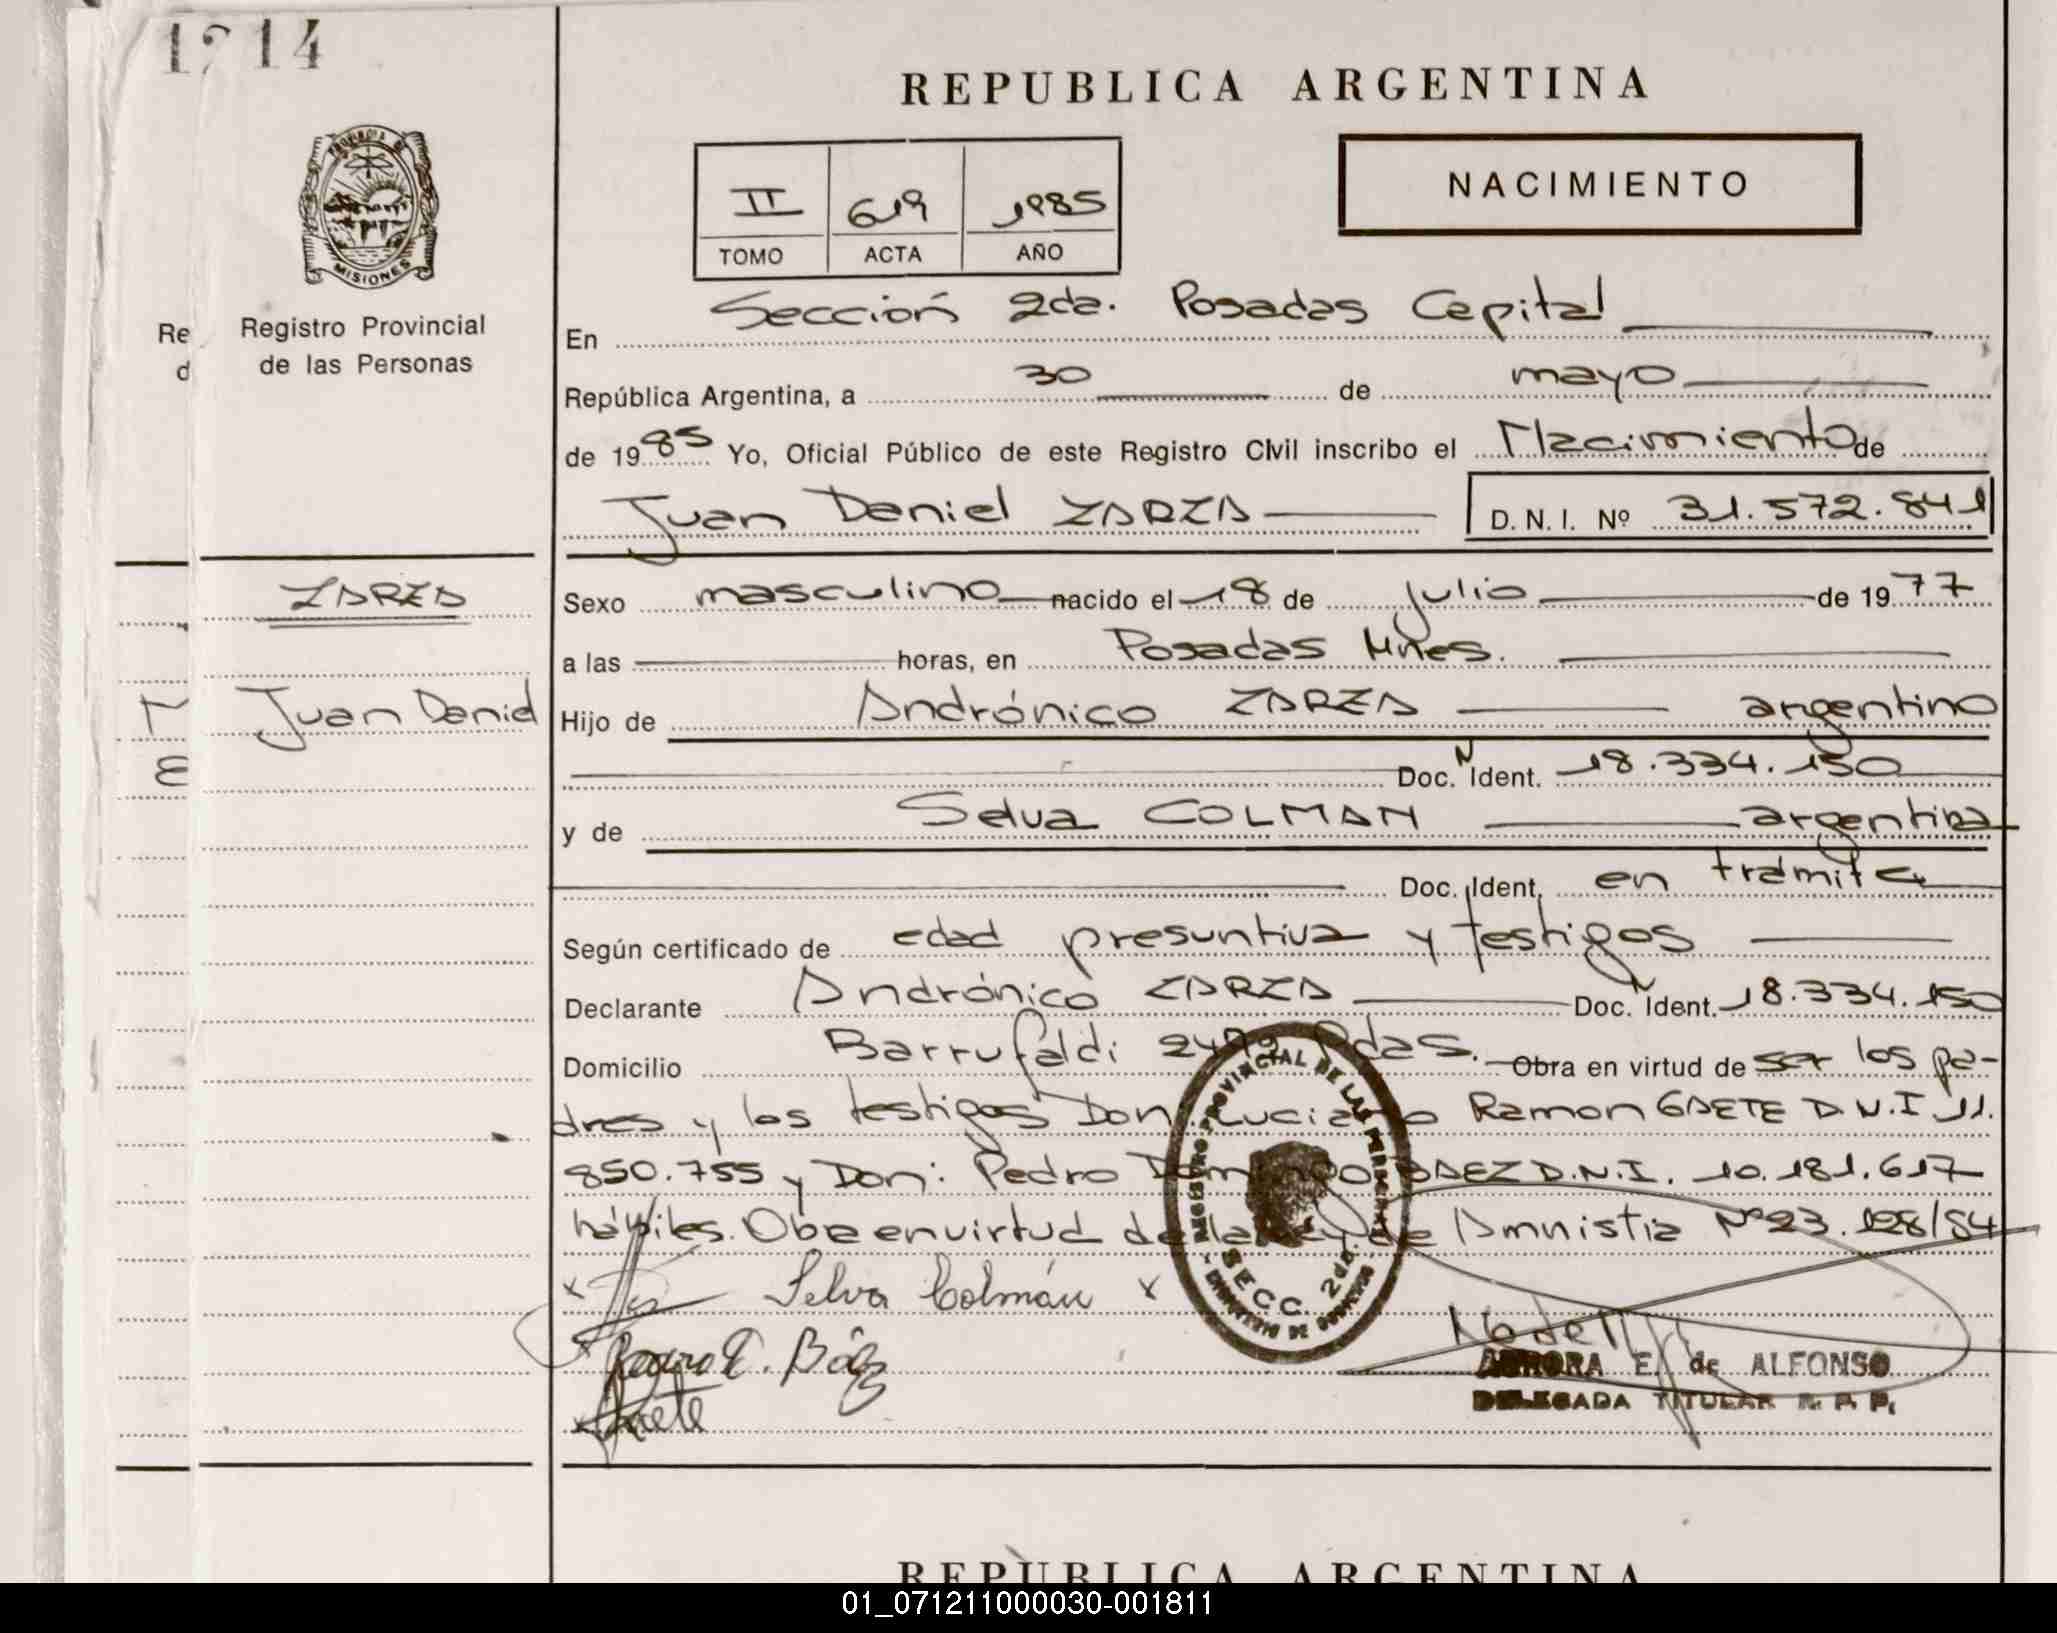 REPUBLICA ARGENTINA
II 619 1985
TOMO ACTA AÑO
NACIMIENTO
PROVINCIA DE
MISIONES
Re Registro Provincial
d de las Personas
En Sección 2da. Posadas Capital
República Argentina, a 30 de mayo
de 1985 Yo, Oficial Público de este Registro Civil inscribo el Nacimiento de
Juan Daniel ZARZA D. N. I. Nº 31.572.841
ZARZA
Juan Daniel
Sexo masculino nacido el 18 de julio de 1977
a las horas, en Posadas Mnes.
Hijo de Andrónico ZARZA argentino
Doc. N Ident. 18.334.150
y de Selva COLMAN argentina
Doc. Ident. en trámite
Según certificado de edad presuntiva y testigos
Declarante Andrónico ZARZA Doc. N Ident. 18.334.150
Domicilio Barrufaldi 2479 Pdas. Obra en virtud de ser los pa-
dres y los testigos Don: Luciano Ramon GAETE D.N.I 11.
850.755 y Don: Pedro Domingo BAEZ D.N.I. 10.181.617
hábiles. Obra en virtud de la Ley de Amnistia Nº 23.128/84
x Selva Colmán x
Pedro D. Báez
Gaete
REGISTRO PROVINCIAL DE LAS PERSONAS
SECC. 2da.
AURORA E. de ALFONSO
DELEGADA TITULAR R. P. P.
REPUBLICA ARGENTINA
01_071211000030-001811